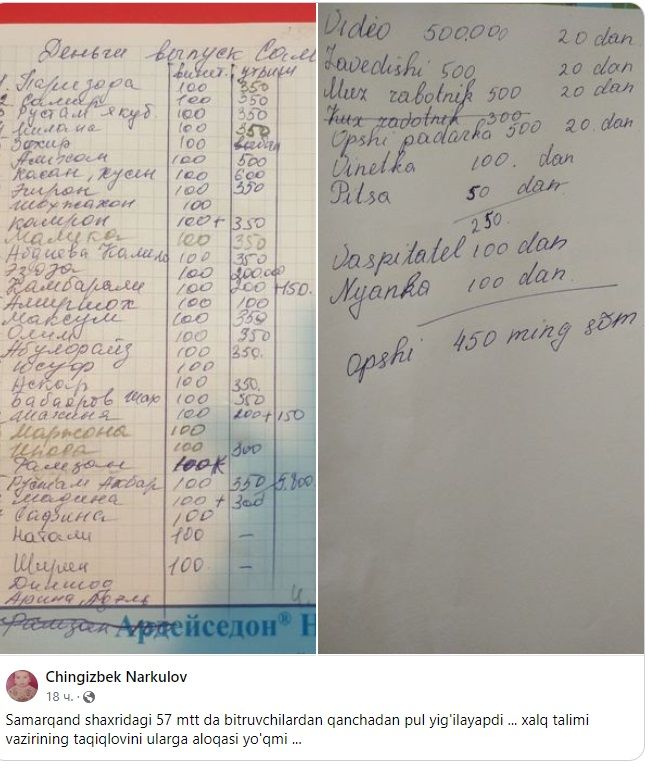 Деньги выпуск Сам
винет. утрини
1 Паризода 100 350
2 Самир 100 350
3 Рустам Якуб. 100 350
4 Милана 100 350
5 Зохир 100
Амирхон 100 500
Хасан, Хусен 100 600
Эмрон 100 350
Мовужахон 100
Камрон 100+ 350
Малика 100 350
Абаиева Камила 100 350
Эзоза 100 200.000
Камбарали 100 200 +150.
Амиршох 100 100
Максум 100 350
Олим 100 350
Абулфайз 100 350.
Юсуф 100
Аскар 100 350.
Бабаёров Шах 100 350
Шахина 100 200+150
Маржона 100
100 300
Рамзан 100к
Рустам Акбар 100 350 5.800
Мадина 100 + 300
Сабзина 100
Натали 100 –
Ширин 100. –
Дилшод
Арина, Адель
Рамзан
Ардейседон® Н
Video 500.000 20 dan
Zavedishi 500 20 dan
Mux rabotnik 500 20 dan
Xux radotnik 300
Opshi padarka 500 20. dan
Vinetka 100. dan
Pitsa 50 dan
250.
Vaspitatel 100 dan
Nyanka 100 dan
Opshi 450 ming sŏm
Chingizbek Narkulov
18 ч. ·
Samarqand shaxridagi 57 mtt da bitruvchilardan qanchadan pul yig'ilayapdi ... xalq talimi
vazirining taqiqlovini ularga aloqasi yo'qmi ...